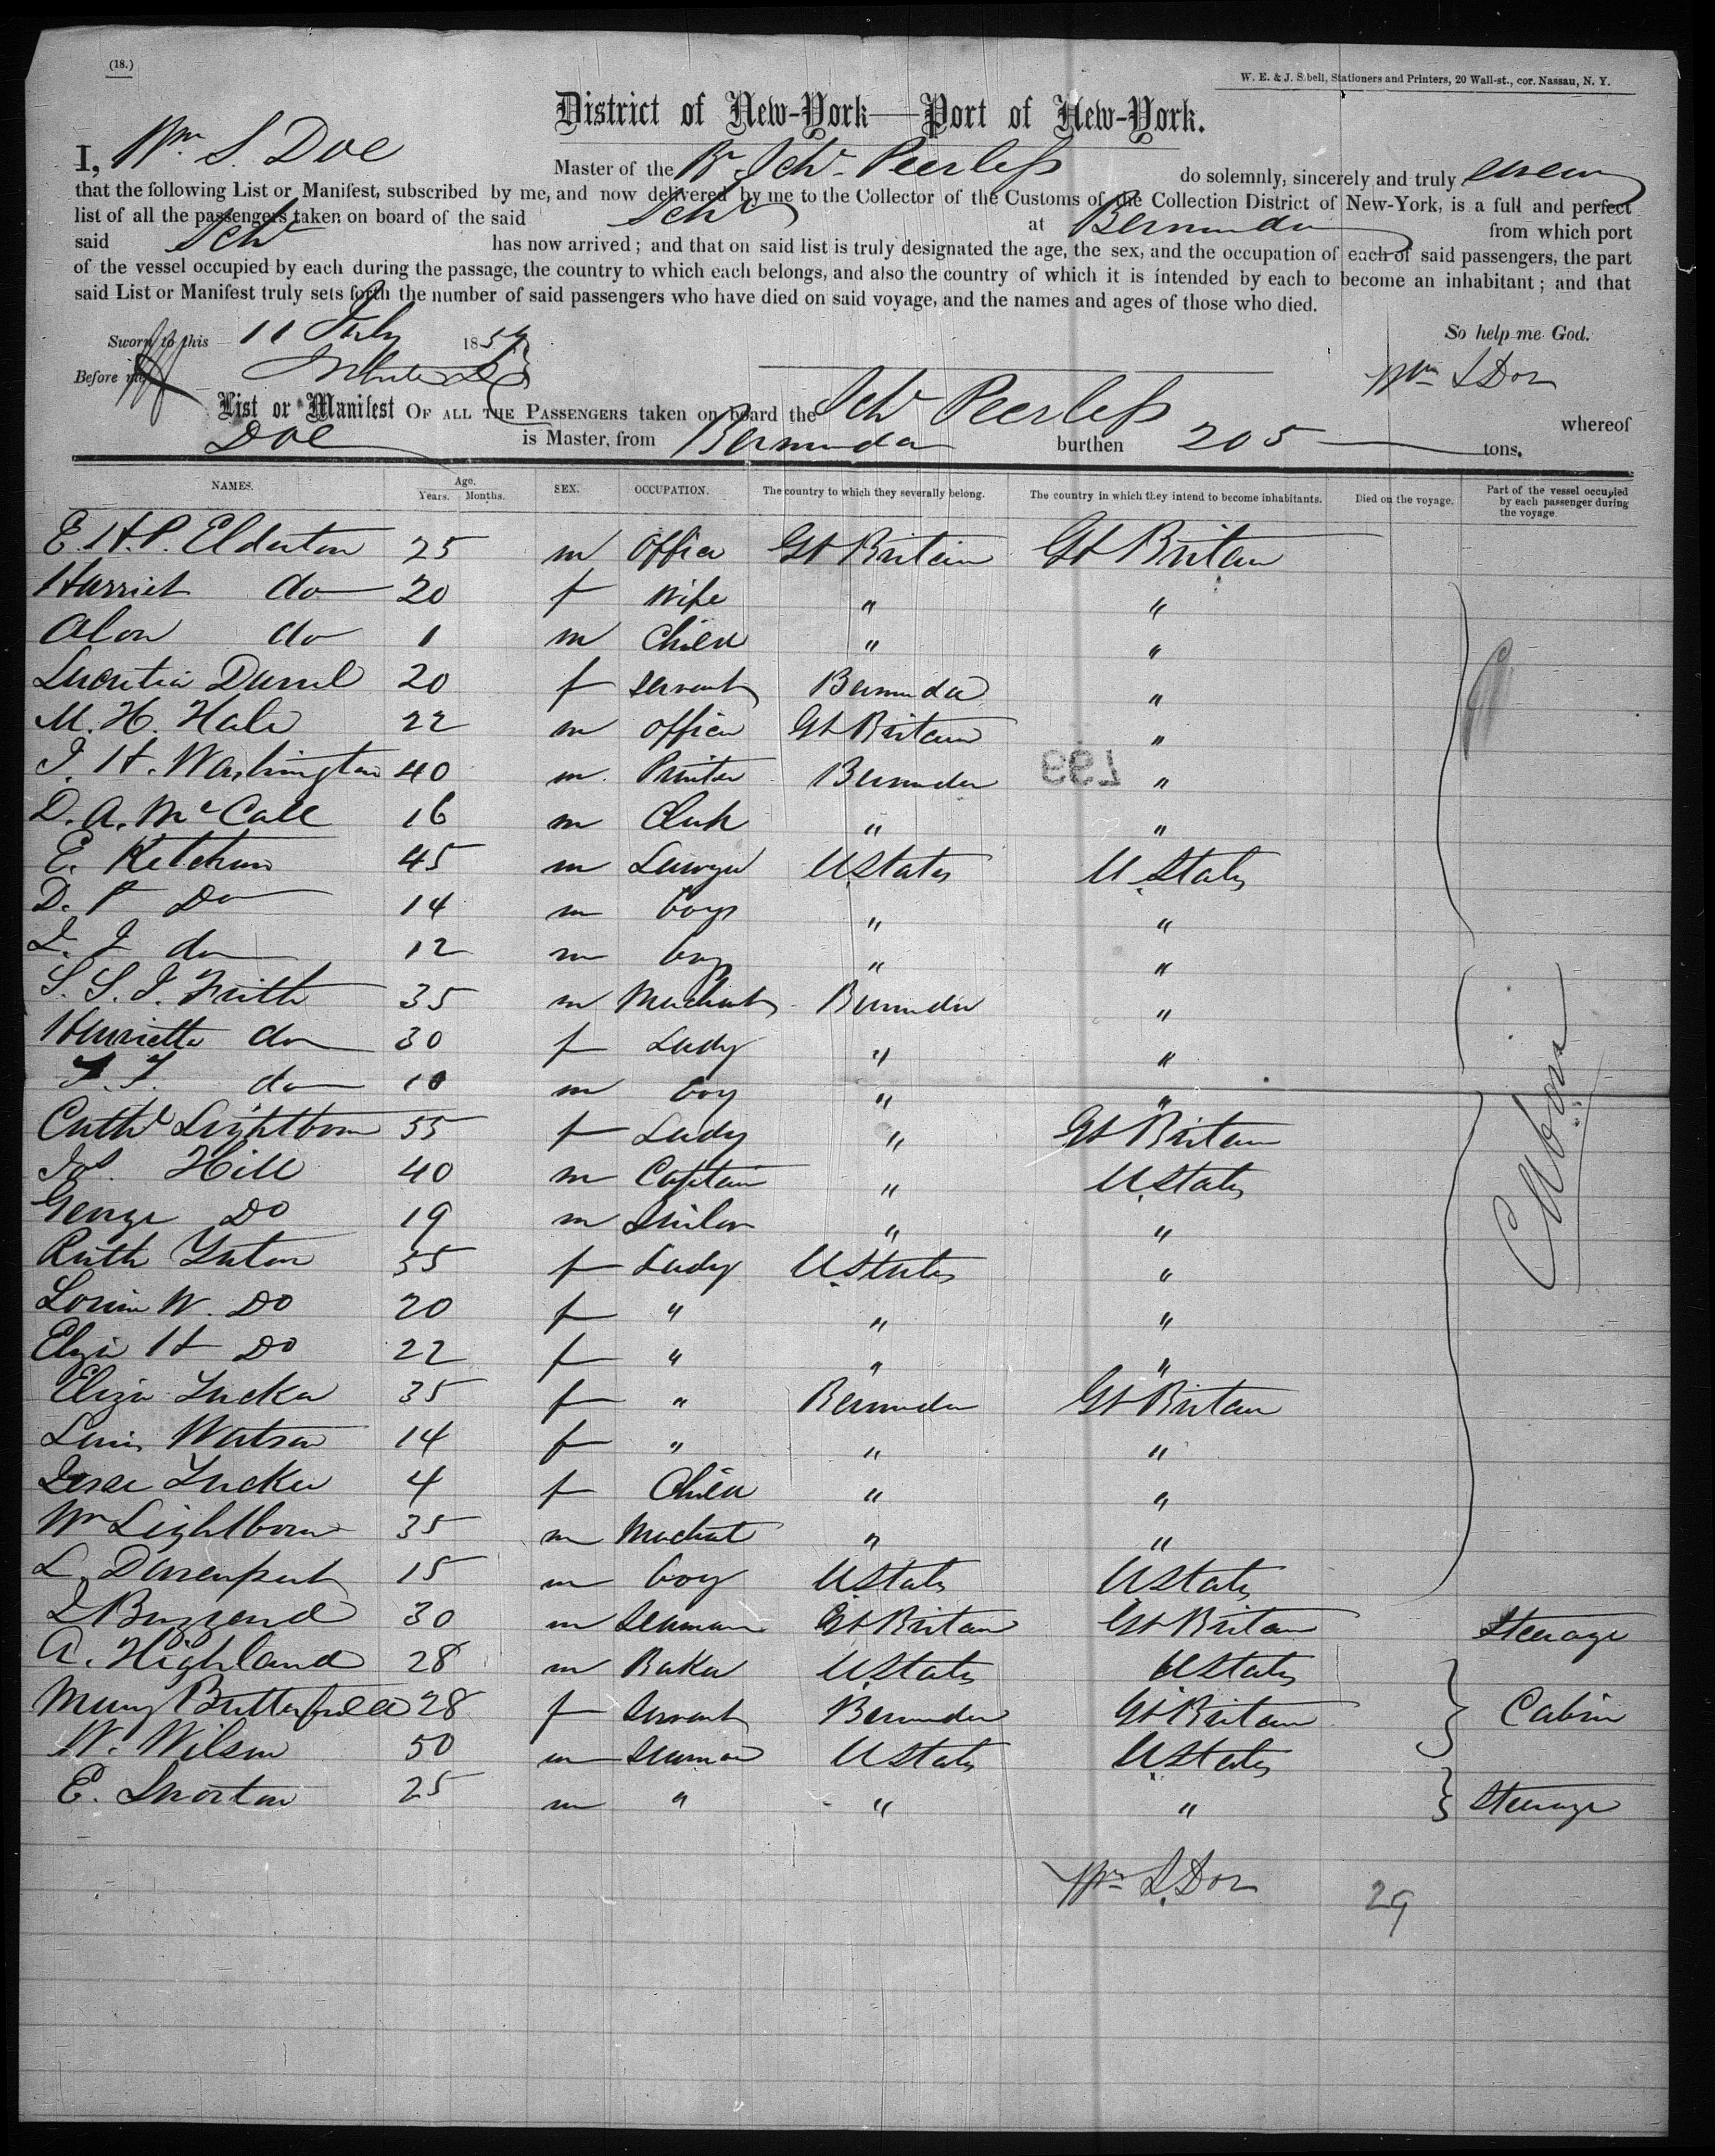 (18.)
W. E. & J. Sibell, Stationers and Printers, 20 Wall-st., cor. Nassau, N. Y.
District of New-York—Port of New-York.
I, Wm S. Doe Master of the Br Schr Peerless do solemnly, sincerely and truly swear
that the following List or Manifest, subscribed by me, and now delivered by me to the Collector of the Customs of the Collection District of New-York, is a full and perfect
list of all the passengers taken on board of the said Schr at Bermuda from which port
said Schr has now arrived; and that on said list is truly designated the age, the sex, and the occupation of each of said passengers, the part
of the vessel occupied by each during the passage, the country to which each belongs, and also the country of which it is intended by each to become an inhabitant; and that
said List or Manifest truly sets forth the number of said passengers who have died on said voyage, and the names and ages of those who died.
Sworn to this 11 July 185 So help me God.
Before me Wm S Doe
List or Manifest OF ALL THE PASSENGERS taken on board the Schr Peerless whereof
Doe is Master, from Bermuda burthen 205 tons.
NAMES. Age. Years. Months. SEX. OCCUPATION. The country to which they severally belong. The country in which they intend to become inhabitants. Died on the voyage. Part of the vessel occupied by each passenger during the voyage
E. H. P. Elderton 25 m Officer Gt Britain Gt Britain
Harriet do 20 f Wife " "
Alon do 1 m Child " "
Lucretia Durrel 20 f Servant Bermuda "
M. H. Hale 22 m Officer Gt Britain "
J. H. Washington 40 m Printer Bermuda "
D. A. McCall 16 m Clerk " "
E. Ketchum 45 m Lawyer U States U States
D. P Do 14 m boy " "
L. J do 12 m boy " "
S. S. J. Frith 35 m Merchant Bermuda "
Henrietta do 30 f Lady " "
do 10 m boy " "
Cathe Lightborn 55 f Lady " Gt Britain
Jos. Hill 40 m Captain " U States
George Do 19 m Sailor " "
Ruth 55 f Lady U States "
W. Do 20 f " " "
Eliza H Do 22 f " " "
Eliza Tucker 35 f " Bermuda Gt Britain
Watson 14 f " " "
Tucker 4 f Child " "
Wm Lightborn 35 m Merchant " "
L. Davenport 15 m boy U States U States
J Buzzard 30 m Seaman Gt Britain Gt Britain Steerage
A. Highland 28 m Baker U States U States
Mary Butterfield 28 f Servant Bermuda Gt Britain Cabin
W. Wilson 50 m Seaman U States U States
E. Snorton 25 m " " " Steerage
Cabin
799
Wm S. Doe 29